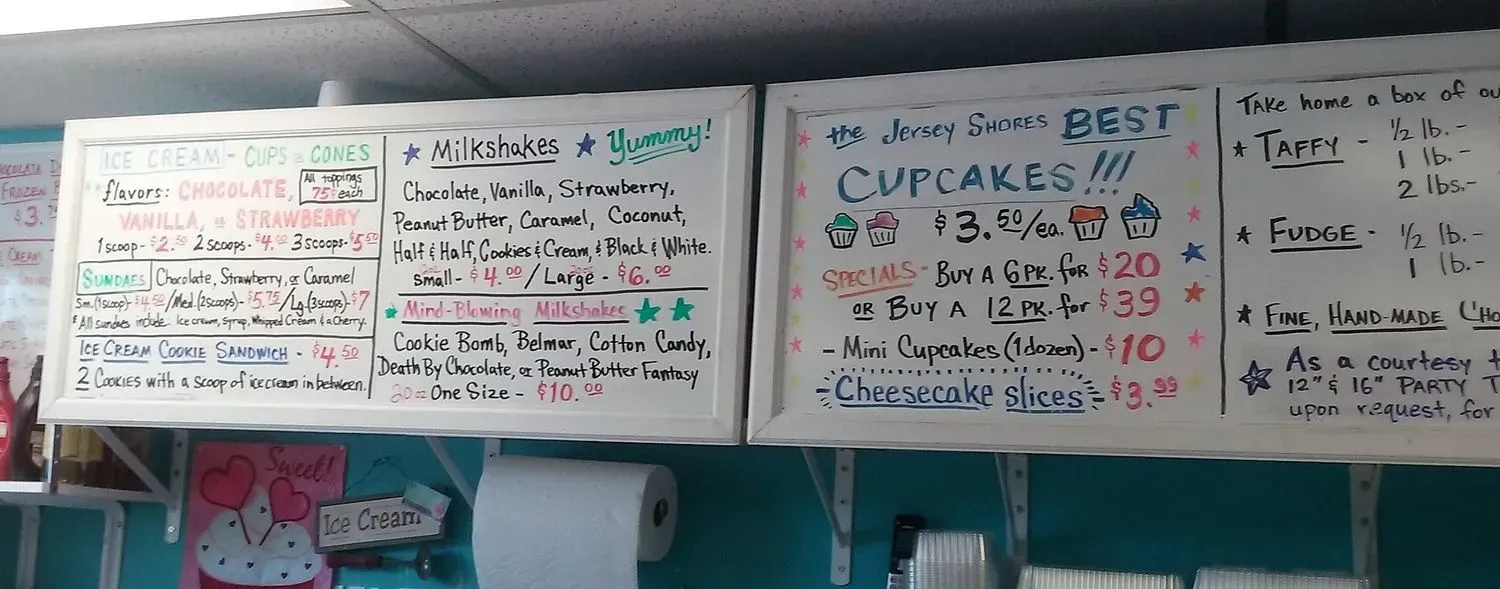 FROZEN
$3.
CREAM
ICE CREAM - CUPS or CONES
flavors: CHOCOLATE,
All toppings
75¢ each
VANILLA, or STRAWBERRY
1 scoop - $2.50 2 scoops - $4.00 3 scoops - $5.50
SUNDAES Chocolate, Strawberry, or Caramel
Sm. (1 scoop) - $4.50 / Med. (2 scoops) - $5.75 / Lg. (3 scoops) - $7
* All sundaes include: Ice cream, Syrup, Whipped Cream & a Cherry.
ICE CREAM COOKIE SANDWICH - $4.50
2 COOKIES with a scoop of ice cream in between.
Milkshakes Yummy!
Chocolate, Vanilla, Strawberry,
Peanut Butter, Caramel, Coconut,
Half & Half, Cookies & Cream, & Black & White.
Small - $4.00 / Large - $6.00
Mind-Blowing Milkshakes
Cookie Bomb, Belmar, Cotton Candy,
Death By Chocolate, or Peanut Butter Fantasy
20 oz One Size - $10.00
the Jersey SHORES BEST
CUPCAKES!!!
$3.50/ea.
SPECIALS - BUY A 6 PK. for $20
OR BUY A 12 PK. for $39
- Mini Cupcakes (1 dozen) - $10
Cheesecake slices - $3.99
TAKE home a box of ou
TAFFY - 1/2 lb. -
1 lb. -
2 lbs. -
FUDGE - 1/2 lb. -
1 lb. -
FINE, HAND-MADE C'Ho
As a courtesy t
12" & 16" PARTY T
upon request, for
Sweet!
Ice Cream